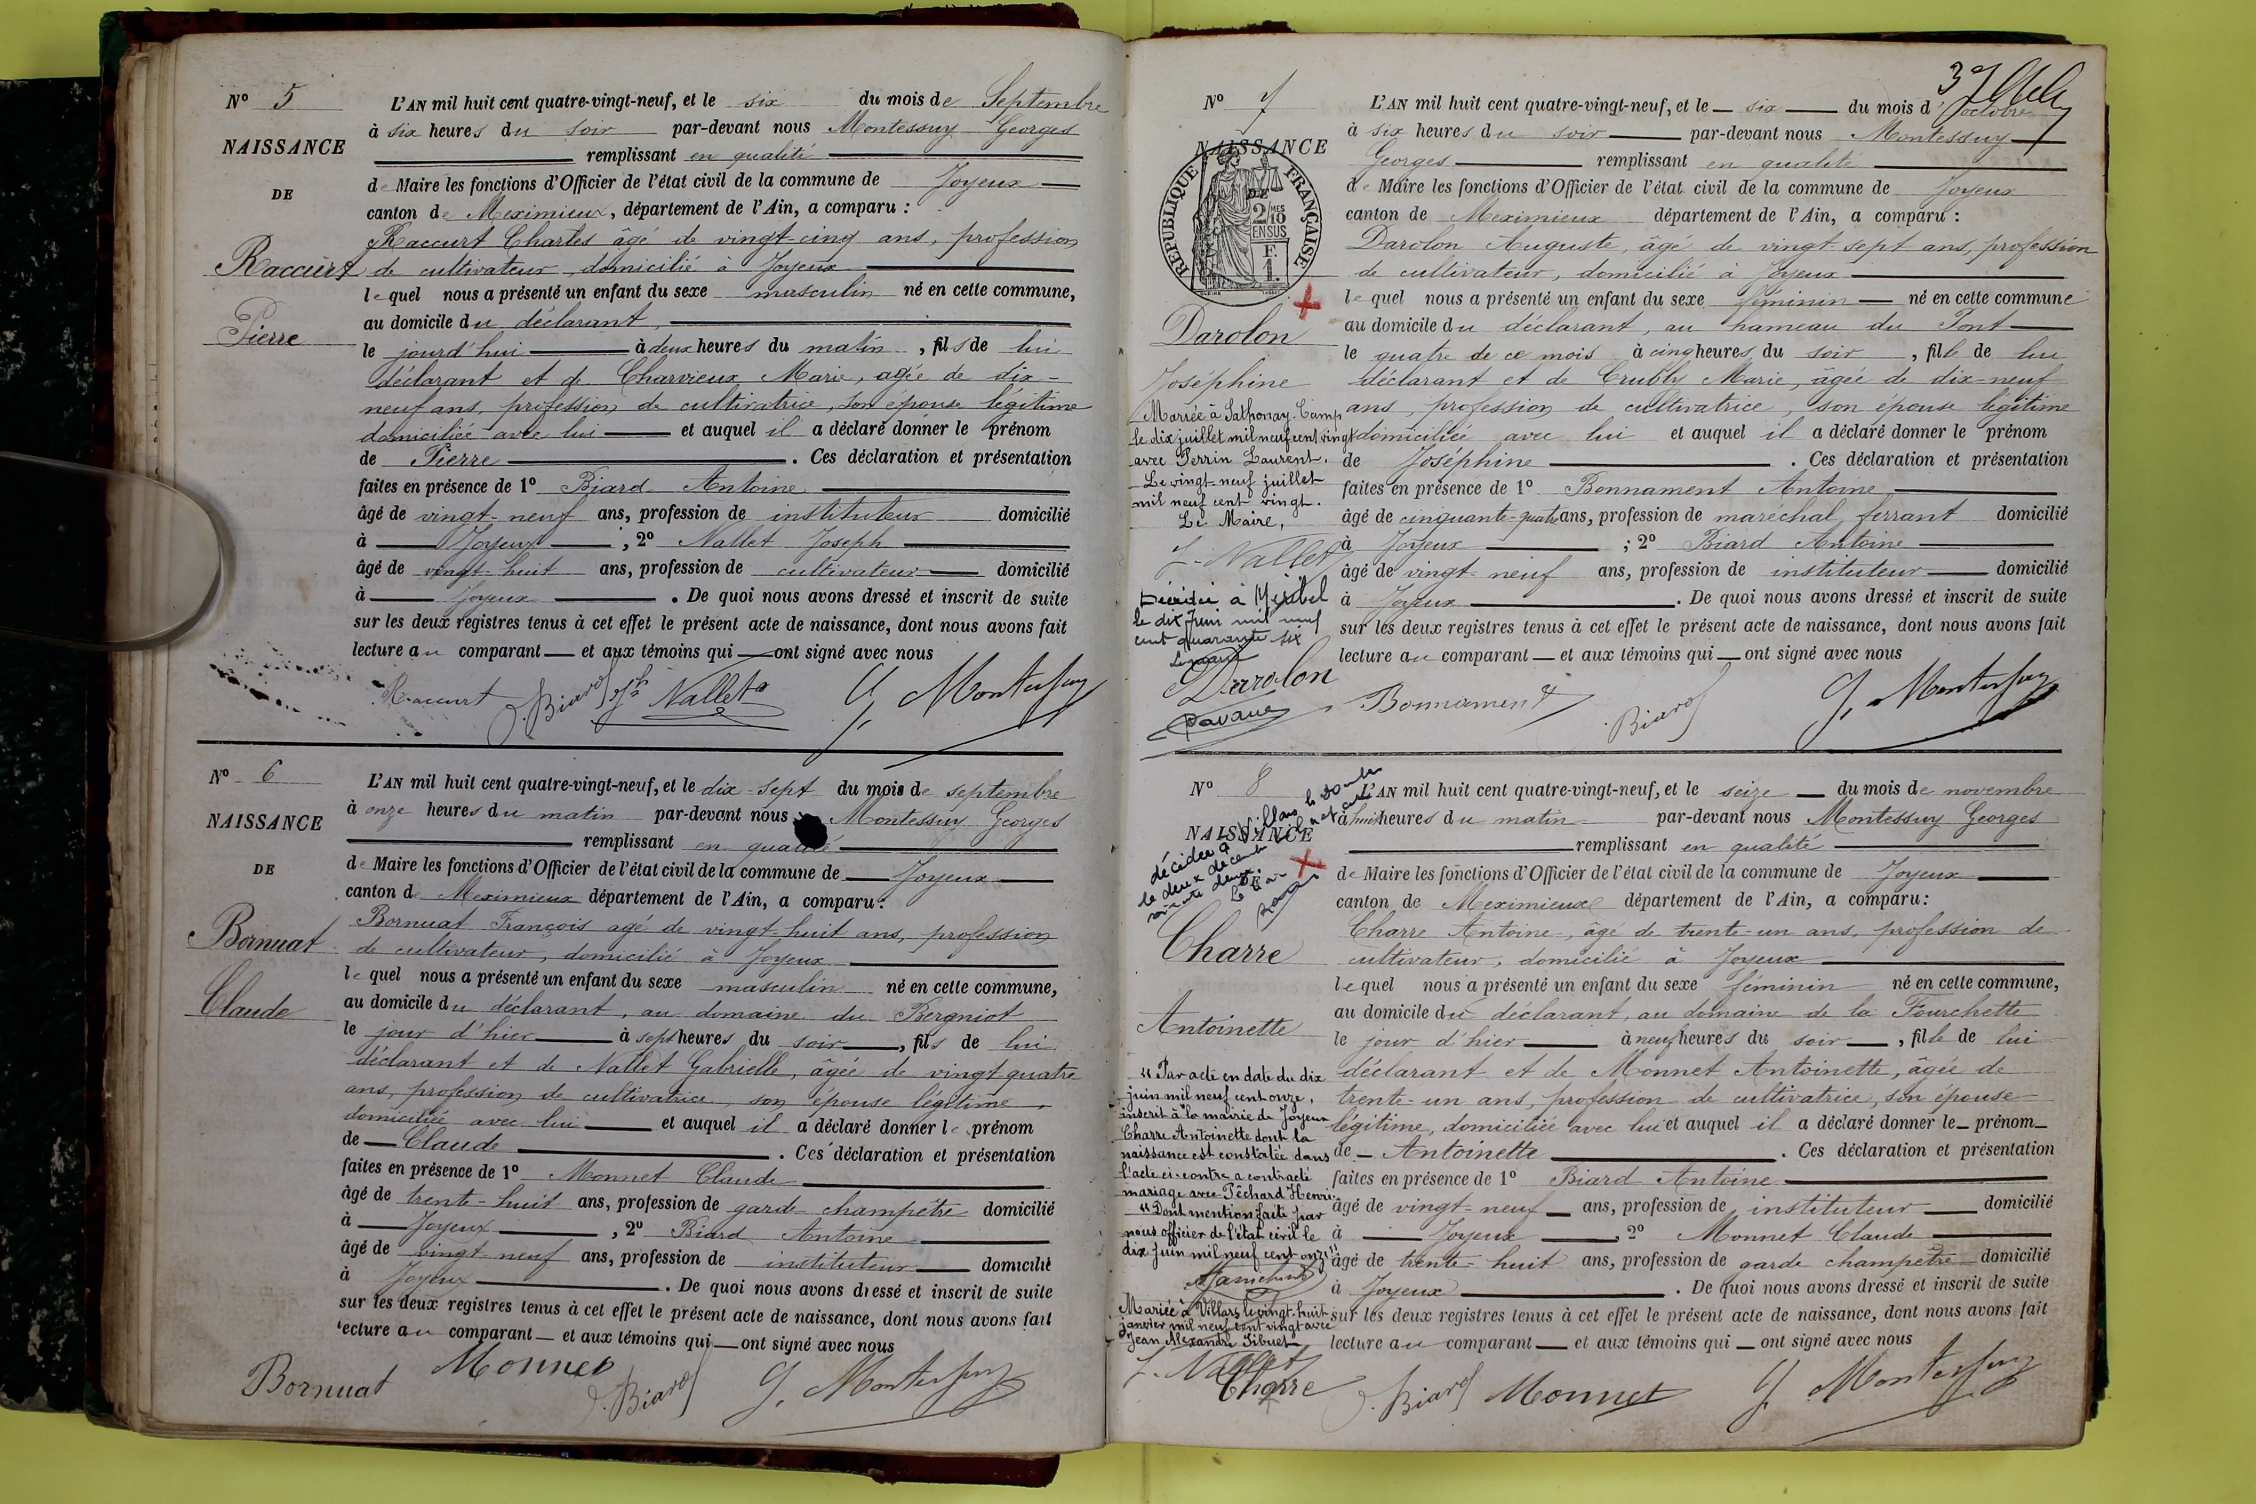 N° 5
NAISSANCE
DE
Raccurt
Pierre
L'AN mil huit cent quatre-vingt-neuf, et le six du mois de Septembre
à six heures du soir par-devant nous Montessuy Georges
remplissant en qualité
de Maire les fonctions d'Officier de l'état civil de la commune de Joyeux
canton de Meximieux, département de l'Ain, a comparu :
Raccurt Charles âgé de vingt-cinq ans, profession
de cultivateur, domicilié à Joyeux
lequel nous a présenté un enfant du sexe masculin né en cette commune,
au domicile du déclarant,
le jourd'hui à deux heures du matin, fils de lui
déclarant et de Charvieux Marie, agée de dix-
neuf ans, profession de cultivatrice, son épouse légitime
domiciliée avec lui et auquel il a déclaré donner le prénom
de Pierre. Ces déclaration et présentation
faites en présence de 1° Biard Antoine
âgé de vingt-neuf ans, profession de instituteur domicilié
à Joyeux ; 2° Nallet Joseph
âgé de vingt-huit ans, profession de cultivateur domicilié
à Joyeux. De quoi nous avons dressé et inscrit de suite
sur les deux registres tenus à cet effet le présent acte de naissance, dont nous avons fait
lecture au comparant et aux témoins qui ont signé avec nous
Raccurt J. Biard Jh Nallet G. Montessuy
N° 6
NAISSANCE
DE
Bornuat
Claude
L'AN mil huit cent quatre-vingt-neuf, et le dix-sept du mois de septembre
à onze heures du matin par-devant nous Montessuy Georges
remplissant en qualité
de Maire les fonctions d'Officier de l'état civil de la commune de Joyeux
canton de Meximieux département de l'Ain, a comparu :
Bornuat François agé de vingt-huit ans, profession
de cultivateur, domicilié à Joyeux
lequel nous a présenté un enfant du sexe masculin né en cette commune,
au domicile du déclarant, au domaine du Bergniot
le jour d'hier à sept heures du soir, fils de lui
déclarant et de Nallet Gabrielle, âgée de vingt-quatre
ans, profession de cultivatrice, son épouse légitime,
domiciliée avec lui et auquel il a déclaré donner le prénom
de Claude. Ces déclaration et présentation
faites en présence de 1° Monnet Claude
âgé de trente-huit ans, profession de garde-champêtre domicilié
à Joyeux, 2° Biard Antoine
âgé de vingt-neuf ans, profession de instituteur domicilié
à Joyeux. De quoi nous avons dressé et inscrit de suite
sur les deux registres tenus à cet effet le présent acte de naissance, dont nous avons fait
lecture au comparant et aux témoins qui ont signé avec nous
Bornuat Monnet J. Biard G. Montessuy
37
N° 7
NAISSANCE
DE
RÉPUBLIQUE FRANÇAISE
2 MES 10 EN SUS
F. 1.
Darolon
Joséphine
Mariée à Sathonay-Camp
le dix juillet mil neuf cent vingt
avec Perrin Laurent.
Le vingt-neuf juillet
mil neuf cent vingt.
Le Maire,
J. Nallet
Décédée à Miribel
le dix Juin mil neuf
cent quarante six
L. maire
Ravaue
L'AN mil huit cent quatre-vingt-neuf, et le six du mois d'octobre
à six heures du soir par-devant nous Montessuy
Georges remplissant en qualité
de Maire les fonctions d'Officier de l'état civil de la commune de Joyeux
canton de Meximieux département de l'Ain, a comparu :
Darolon Auguste, âgé de vingt-sept ans, profession
de cultivateur, domicilié à Joyeux
lequel nous a présenté un enfant du sexe féminin né en cette commune
au domicile du déclarant, au hameau du Pont
le quatre de ce mois à cinq heures du soir, fille de lui
déclarant et de Crubly Marie, âgée de dix-neuf
ans, profession de cultivatrice, son épouse légitime
domiciliée avec lui et auquel il a déclaré donner le prénom
de Joséphine. Ces déclaration et présentation
faites en présence de 1° Bonnament Antoine
âgé de cinquante-quatre ans, profession de maréchal ferrant domicilié
à Joyeux ; 2° Biard Antoine
âgé de vingt-neuf ans, profession de instituteur domicilié
à Joyeux. De quoi nous avons dressé et inscrit de suite
sur les deux registres tenus à cet effet le présent acte de naissance, dont nous avons fait
lecture au comparant et aux témoins qui ont signé avec nous
Darolon Bonnament J. Biard G. Montessuy
N° 8
NAISSANCE
DE
décidee à Villars
le deux décembre
soixante deux.
Charre
Antoinette
"Par acte en date du dix
juin mil neuf cent onze,
inscrit à la mairie de Joyeux
Charre Antoinette dont la
naissance est constatée dans
l'acte ci-contre a contracté
mariage avec Péchard Henri.
"Dont mention faite par
nous officier de l'état civil le
dix Juin mil neuf cent onze"
Mariée à Villars le vingt-huit
janvier mil neuf cent vingt avec
Jean Alexandre Sibuet
J. Nallet
L'AN mil huit cent quatre-vingt-neuf, et le seize du mois de novembre
à huit heures du matin par-devant nous Montessuy Georges
remplissant en qualité
de Maire les fonctions d'Officier de l'état civil de la commune de Joyeux
canton de Meximieux département de l'Ain, a comparu :
Charre Antoine, âgé de trente-un ans, profession de
cultivateur, domicilié à Joyeux
lequel nous a présenté un enfant du sexe féminin né en cette commune,
au domicile du déclarant, au domaine de la Fourchette
le jour d'hier à neuf heures du soir, fille de lui
déclarant et de Monnet Antoinette, âgée de
trente-un ans, profession de cultivatrice, son épouse
légitime, domiciliée avec lui et auquel il a déclaré donner le prénom
de Antoinette. Ces déclaration et présentation
faites en présence de 1° Biard Antoine
âgé de vingt-neuf ans, profession de instituteur domicilié
à Joyeux, 2° Monnet Claude
âgé de trente-huit ans, profession de garde champêtre domicilié
à Joyeux. De quoi nous avons dressé et inscrit de suite
sur les deux registres tenus à cet effet le présent acte de naissance, dont nous avons fait
lecture au comparant et aux témoins qui ont signé avec nous
Charre J. Biard Monnet G. Montessuy